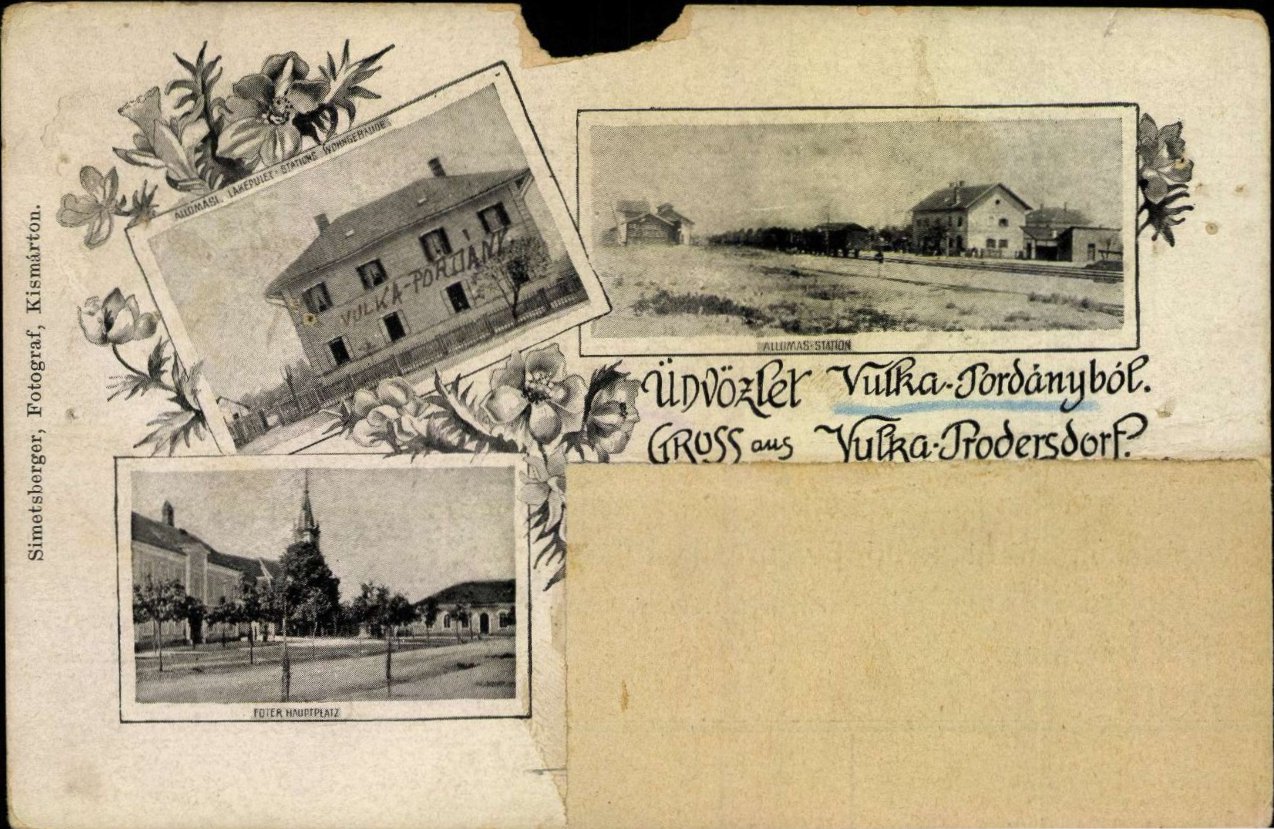 Simetsberger, Fotograf, Kismárton.
ÁLLOMÁSI LAKÉPÜLET-STATIONS WOHNGEBÄUDE
VULKA-PORDÁNY
ÁLLOMÁS-STATION
ÜDVÖZLET Vulka-Pordányból.
GRUSS aus Vulka-Prodersdorf.
FŐTÉR HAUPTPLATZ